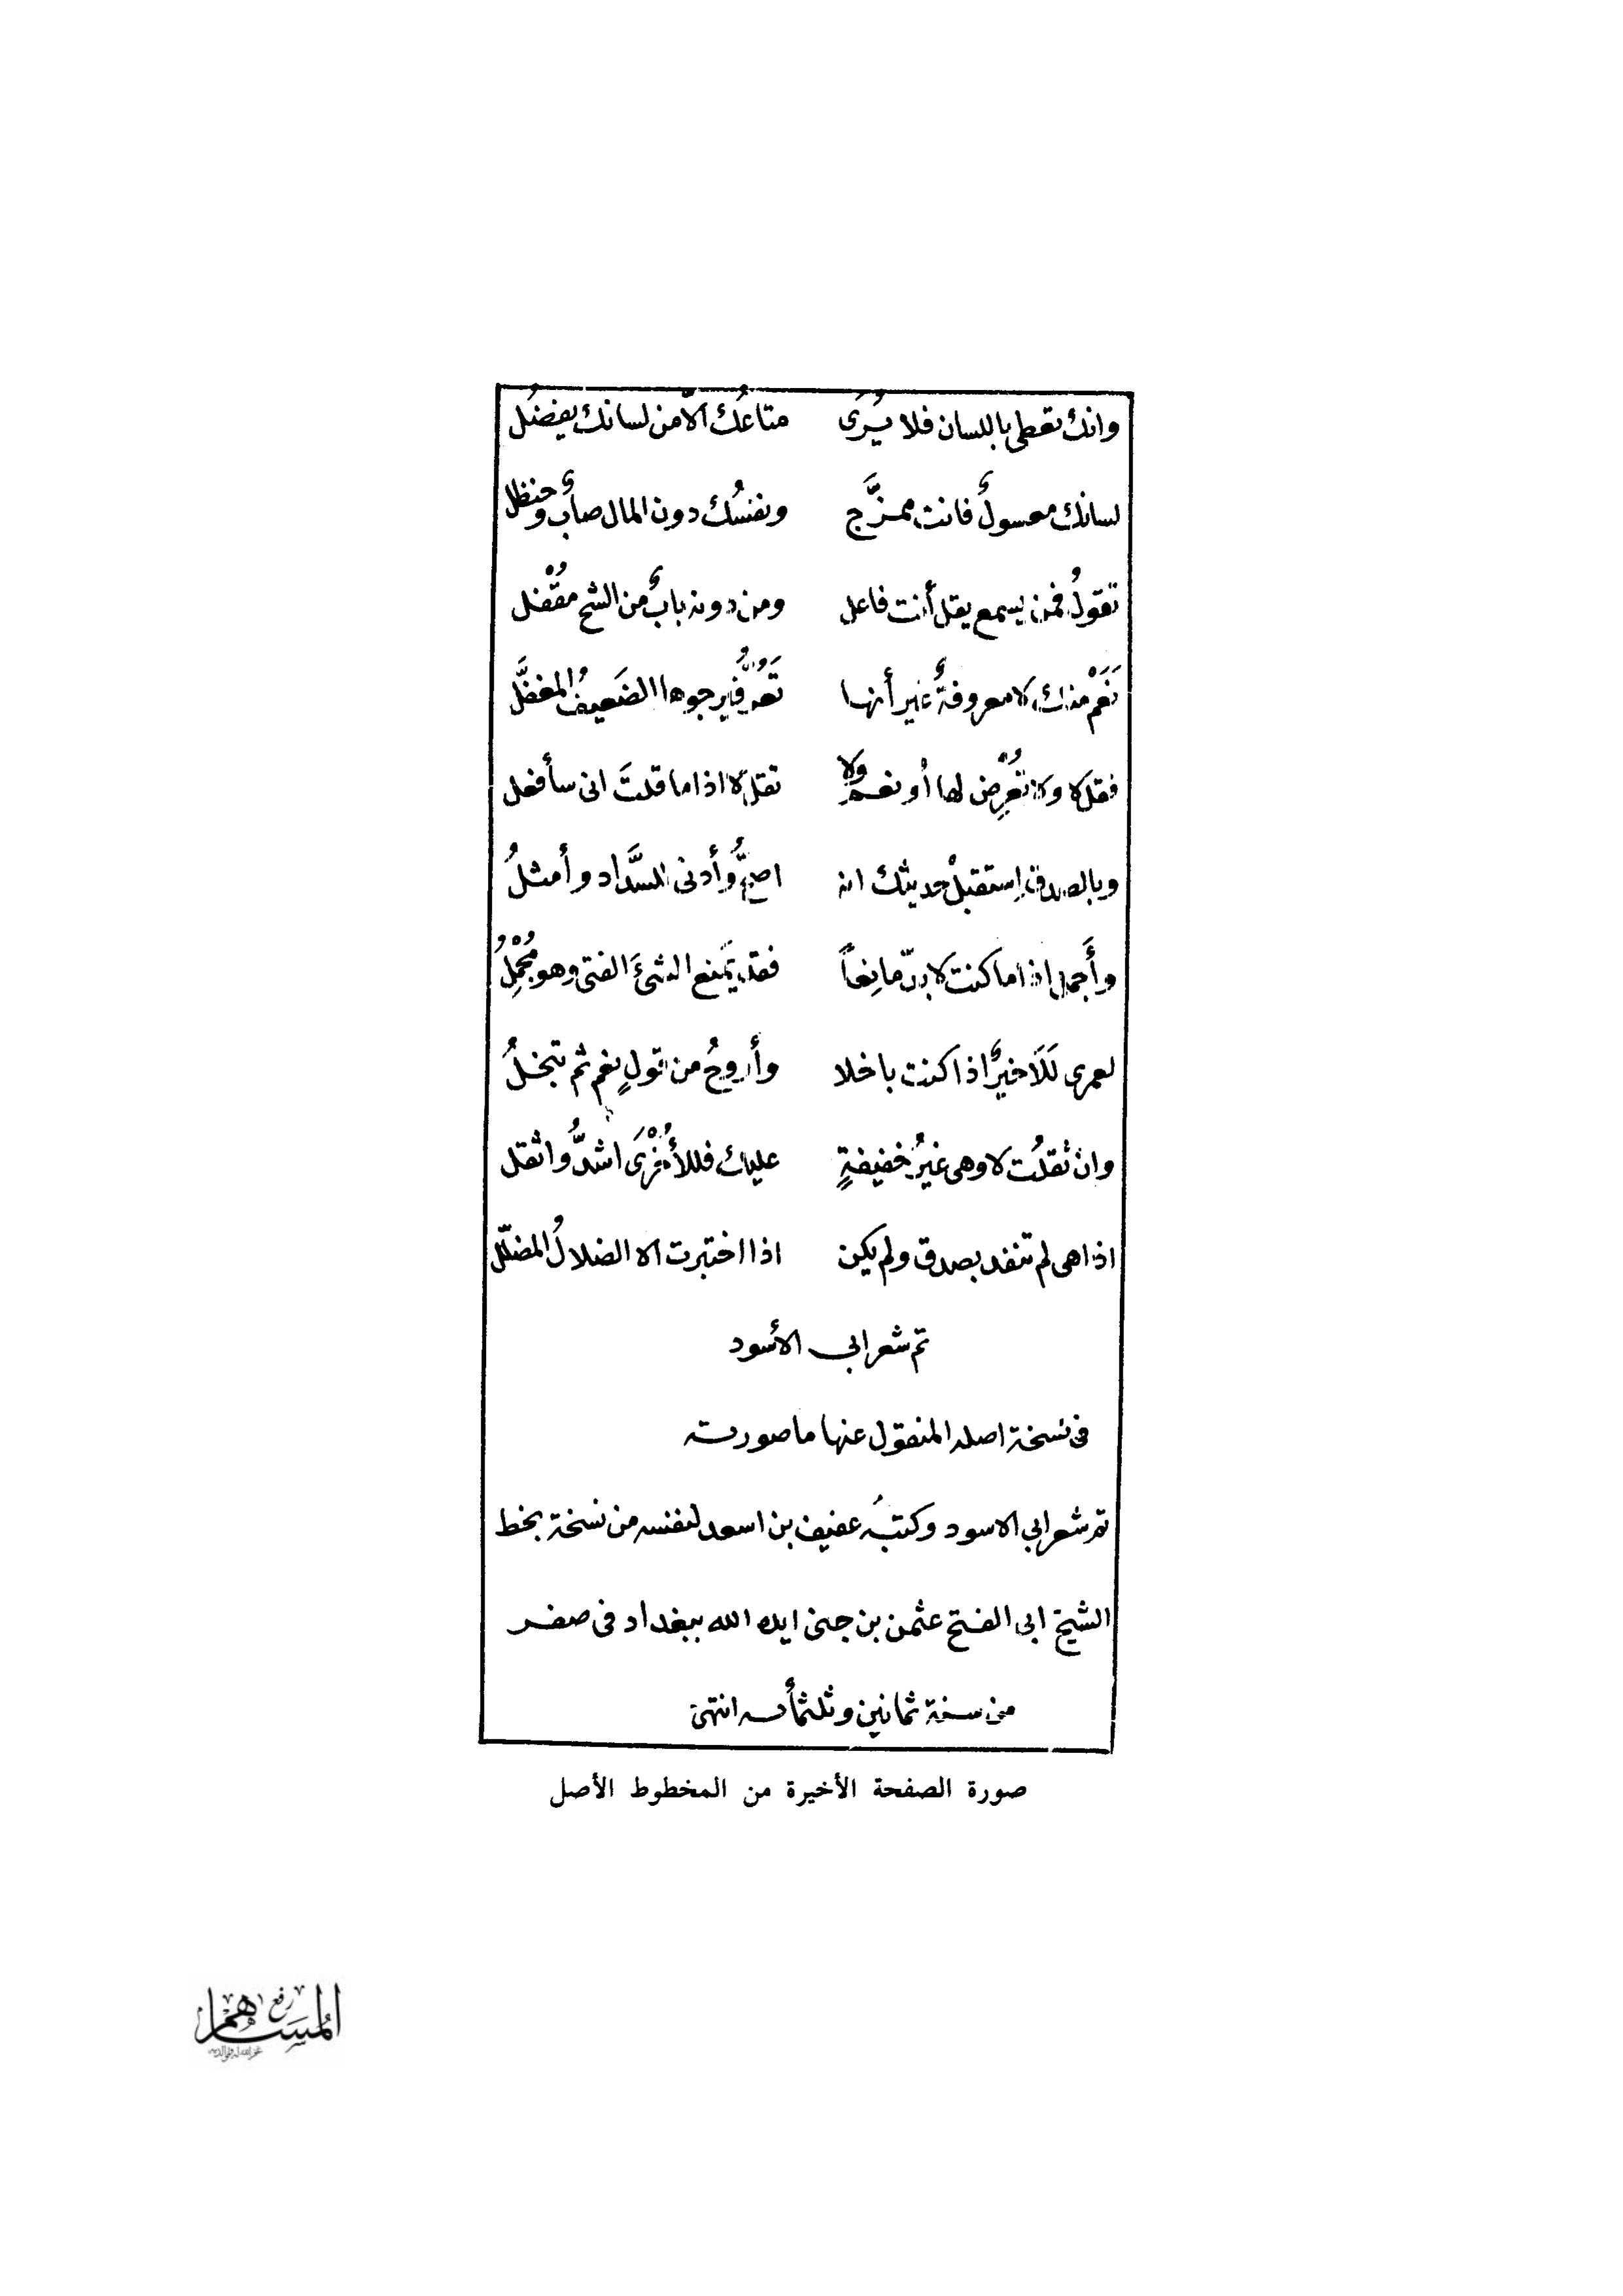 وانك تعطى باللسان فلا يُرَى متاعُك الاّ من لسانك يفضُل
لسانك معسولٌ فانت ممزَّج ونفسُك دون المال صابٌ وحنظل
تقولُ فمن يسمع يقل أنت فاعل ومن دونه بابٌ من الشح مُقْفل
نَعَمْ منك لا معروفةٌ غير أنها تَعُرُّ فيرجوها الضَعيفُ المغفَّل
فقل لا ولا تُعْرِض لها أو نعم ولا تقل لا اذا ما قلتَ انى سأفعل
وبالصدق إستقبلْ حديثك انه اصحُّ وأدنى للسَّداد وأمثلُ
وأَجمل اذا ما كنت لا بدّ مانِعاً فقد يَمنع الشئَ الفتى وهو مُجْمِلُ
لعمرى لَلَا خيرٌ اذا كنت باخلا وأروحُ من قولٍ نعم ثم تبخلُ
وان ثقلُت لا وهى غيرُ خفيفةٍ عليك فللأُخْرَى اشدُّ واثقل
اذا هى لم تنفد بصدق ولم يكن اذا اختبرت الا الضلالُ المضلّل
تم شعر ابى الأسود
فى نسخة اصله المنقول عنها ما صورته
تم شعر ابي الاسود وكتبُه عفيف بن اسعد لنفسه من نسخة بخط
الشيخ ابى الفتح عثمن بن جنى ايده الله ببغداد فى صفر
من سنة ثمانين وثلثمأىه انتهى
صورة الصفحة الأخيرة من المخطوط الأصل
رفع
المساهم
غفر الله له ولوالديه